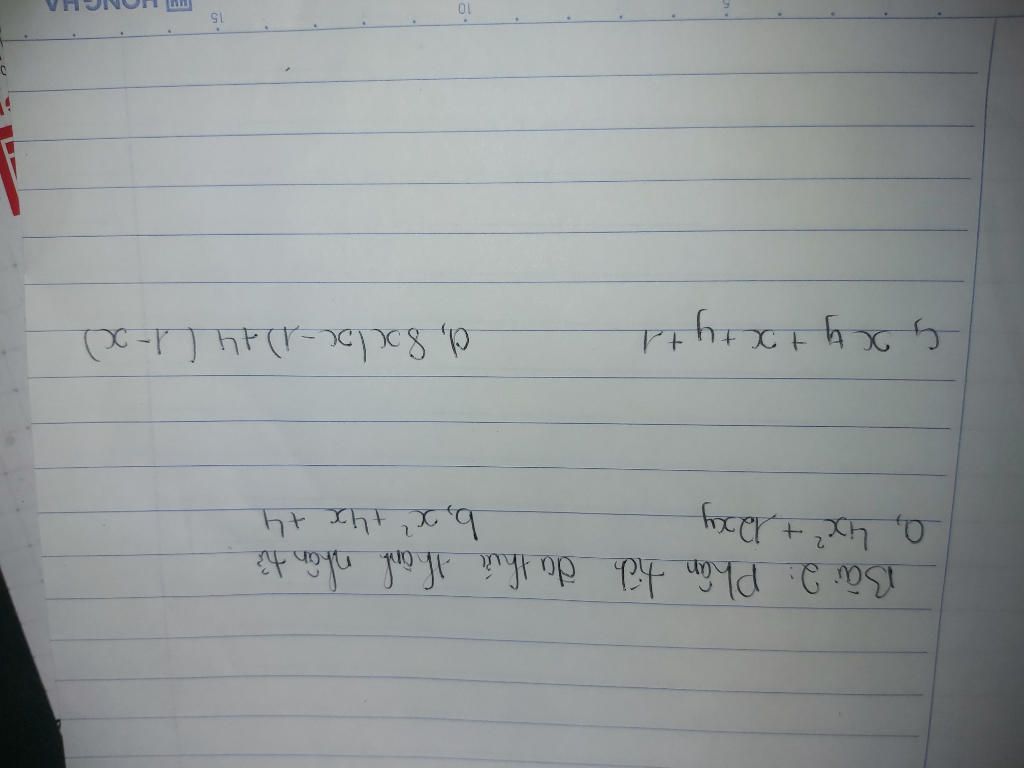 Bài 2: Phân tích đa thức thành nhân tử
a, 4x² + 12xy b, x² + 4x + 4
c, xy + x + y + 1 d, 8x(x - 1) + 4(1 - x)
5 10 15
HONG HA